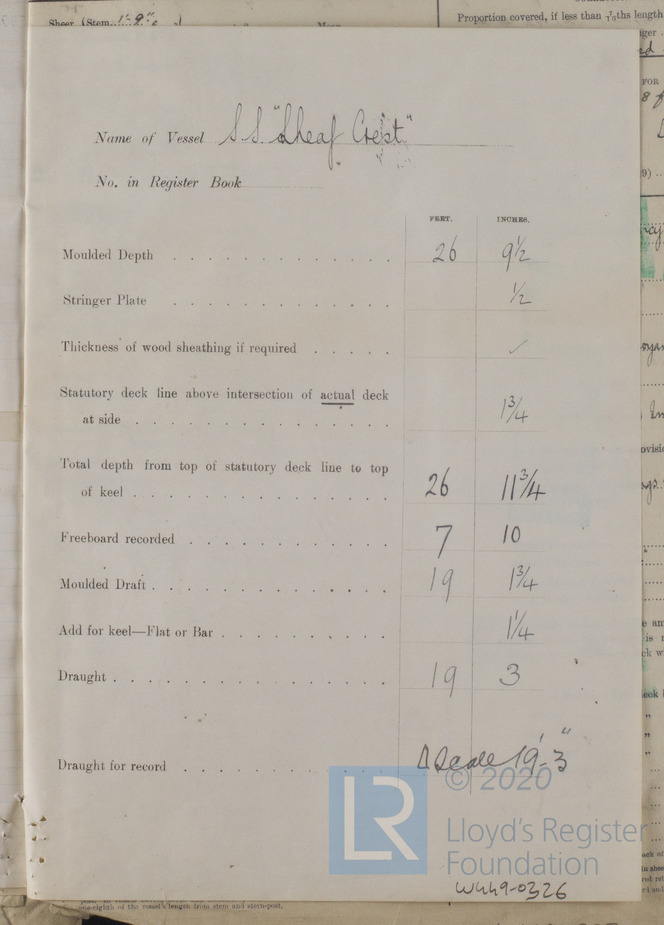 Sheer (Stem 1'-9"
Proportion covered, if less than 7/10ths length
Name of Vessel S.S. "Sheaf Crest"
No. in Register Book
FEET. INCHES.
Moulded Depth . . . . . . . . . . . . . 26 9½
Stringer Plate . . . . . . . . . . . . . ½
Thickness of wood sheathing if required . . . . . ✓
Statutory deck line above intersection of actual deck
at side . . . . . . . . . . . . . . . 1¾
Total depth from top of statutory deck line to top
of keel . . . . . . . . . . . . . . . 26 11¾
Freeboard recorded . . . . . . . . . . . . 7 10
Moulded Draft . . . . . . . . . . . . . . 19 1¾
Add for keel—Flat or Bar . . . . . . . . . . 1¼
Draught . . . . . . . . . . . . . . . . 19 3
Draught for record . . . . . . . . . . . 19'-3"
LR
© 2020
Lloyd's Register
Foundation
W449-0326
one-eighth of the vessel's length from stem and stern-post.